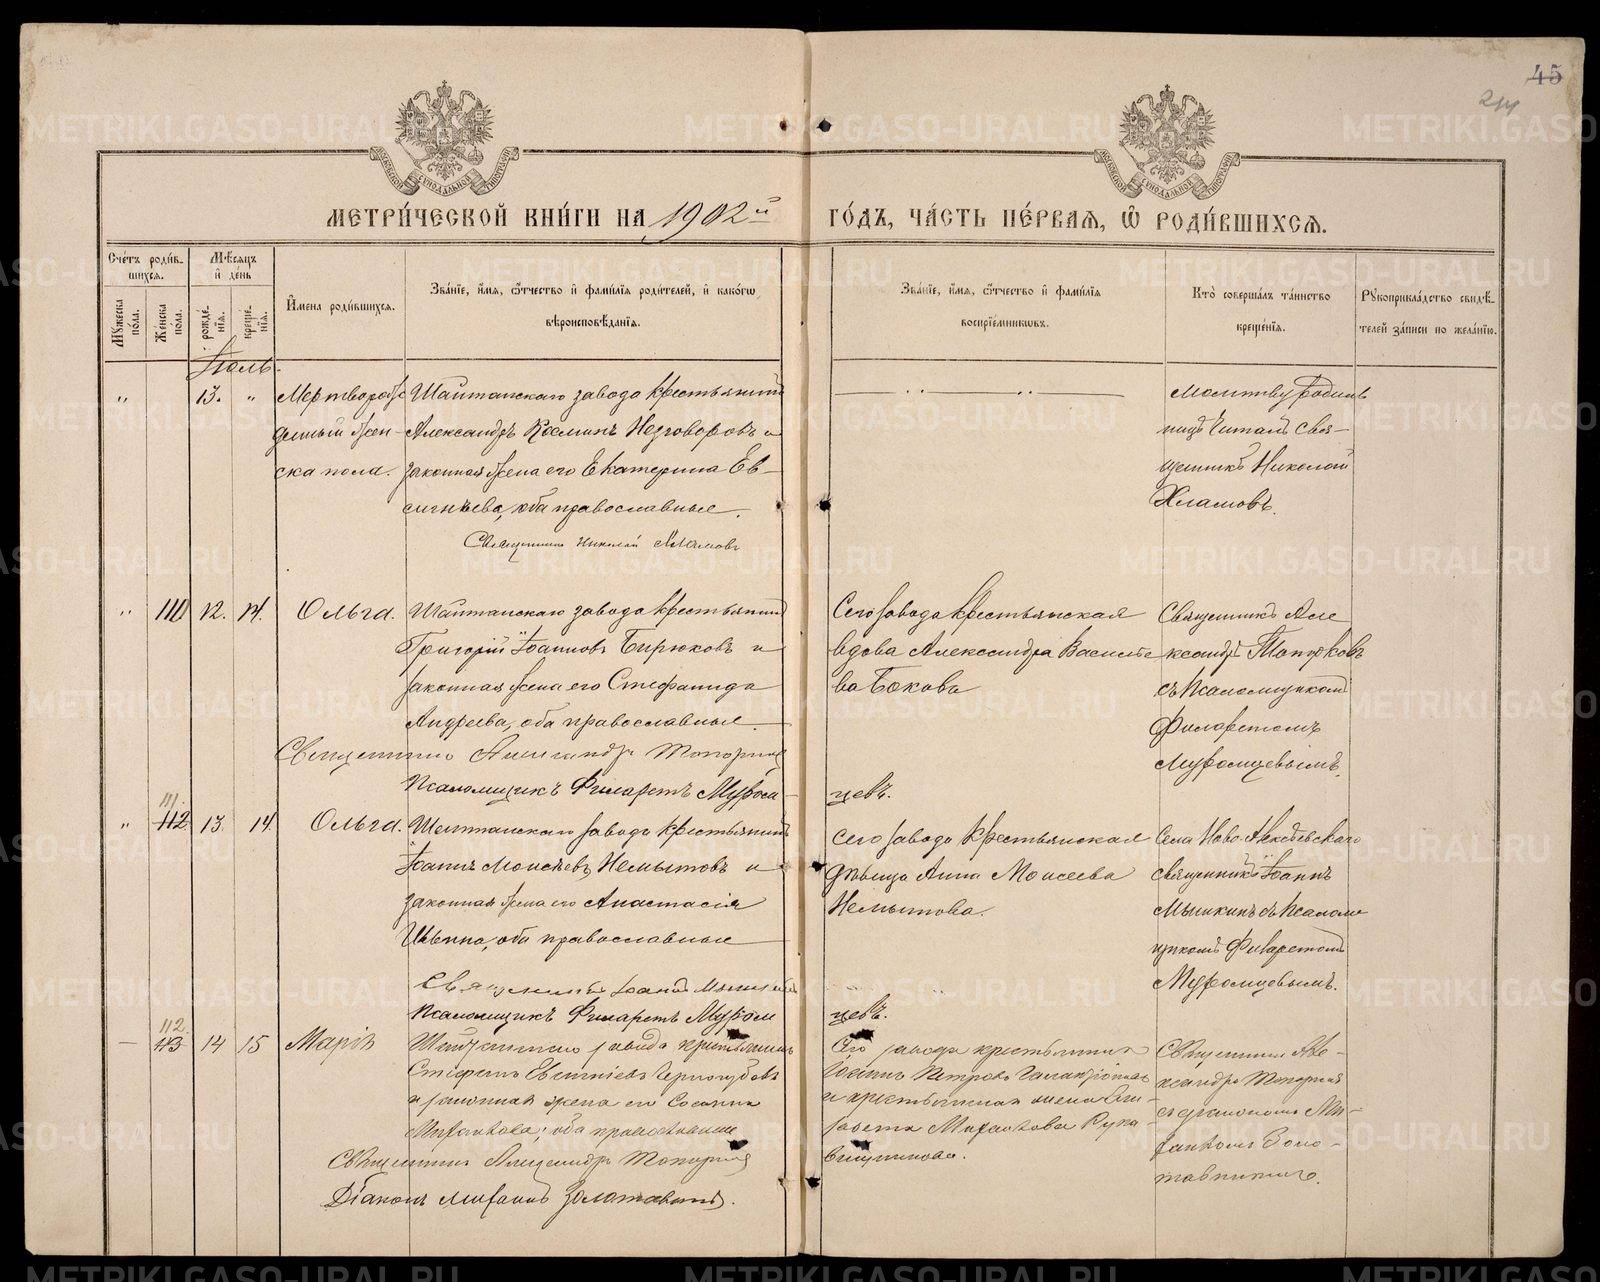 45
214
МОСКОВСКОЙ СѴНОДАЛЬНОЙ ТИПОГРАФІИ
МОСКОВСКОЙ СѴНОДАЛЬНОЙ ТИПОГРАФІИ
МЕТРИ́ЧЕСКОЙ КНИ́ГИ НА 1902й ГО́ДЪ, ЧА́СТЬ ПЕ́РВАЯ, Ѽ РОДИ́ВШИХСЯ.
Счéтъ роди́в-
шихся.
Мꙋ́жеска пóла.
Жéнска пóла.
Мѣ́сяцъ
и҆ дéнь
рождé-
нїя.
крещé-
нїя.
И҆мена роди́вшихся.
Звáнїе, и҆́мя, ѻ҆́тчество и҆ фами́лїя роди́телей, и҆ какóгѡ
вѣроисповѣ́данїя.
Звáнїе, и҆́мя, ѻ҆́тчество и҆ фами́лїя
воспрїéмниковъ.
Ктò совершáлъ тáинство
крещéнїя.
Рꙋкоприклáдство свидѣ́-
телей зáписи по желáнїю.
Іюль.
" 13. " Мертворож
денный жен-
ска пола.
Шайтанскаго завода крестьянинъ
Александръ Косминъ Незговоровъ и
законная жена его Екатерина Ев-
сигнѣева, оба православные.
Священникъ Николай Хламовъ
Молитву родиль
ницѣ читалъ свя-
щенникъ Николай
Хламовъ.
" 110 12. 14. Ольга.
Шайтанскаго завода крестьянинъ
Григорій Іоанновъ Бирюковъ и
законная жена его Стефанида
Андреева, оба православные
Священникъ Александръ Топорковъ
Псаломщикъ Филаретъ Муром
цевъ.
Сего завода крестьянская
вдова Александра Василье
ва Бокова
Священникъ Але
ксандръ Топорковъ
съ псаломщикомъ
Филаретомъ
Муромцевымъ.
" 111. 112 13. 14. Ольга.
Шайтанскаго завода крестьянинъ
Іоаннъ Моисѣевъ Немытовъ и
законная жена его Анастасія
Ильина, оба православные
Священникъ Іоаннъ Мышкинъ
Псаломщикъ Филаретъ Муром
цевъ.
Сего завода крестьянская
дѣвица Анна Моисеева
Немытова.
Села Ново-Алексѣевскаго
священникъ Іоаннъ
Мышкинъ съ псалом
щикомъ Филаретомъ
Муромцовымъ.
— 112. 113 14 15 Марія
Шайтанскаго завода крестьянинъ
Стефанъ Евгеніевъ Черногубовъ
и законная жена его Сосанна
Михайлова; оба православные
Священникъ Александръ Топорковъ
Діаконъ Михаилъ Золотавинъ.
Сего завода крестьянинъ
Іоаннъ Петровъ
и крестьянская жена Ели-
завета Михайлова Рука-
вишникова.
Священникъ Але-
ксандръ Топорковъ
съ діакономъ Ми-
хаиломъ Золо-
тавинымъ.
METRIKI.GASO-URAL.RU